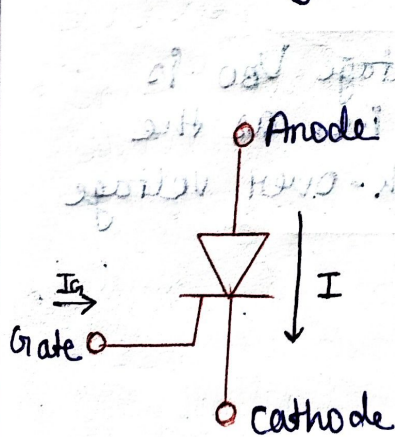 Anode
IG
I
Gate
Cathode